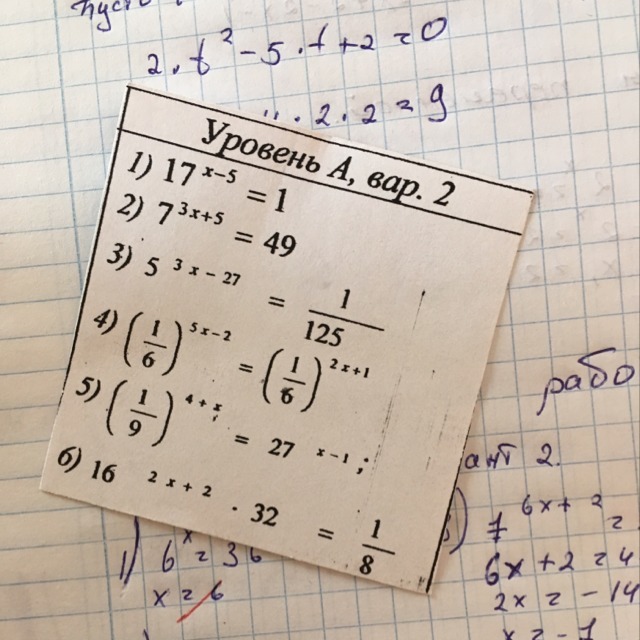 2·t² - 5·t + 2 = 0
·2·2 = 9
Уровень А, вар. 2
1) 17^(x-5) = 1
2) 7^(3x+5) = 49
3) 5^(3x-27) = 1/125
4) (1/6)^(5x-2) = (1/6)^(2x+1)
5) (1/9)^(4+x) = 27^(x-1);
6) 16^(2x+2) · 32 = 1/8
рабо
ант 2.
1) 6^x = 36
x = 6
6x + 2 = 4
2x = -14